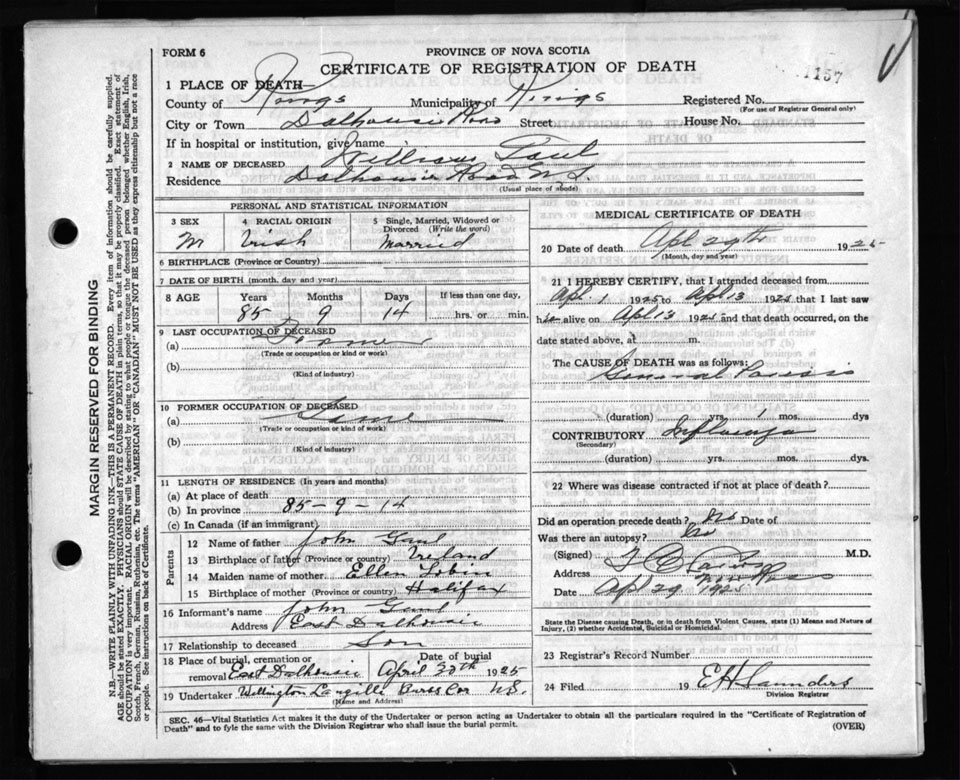 FORM 6
PROVINCE OF NOVA SCOTIA
CERTIFICATE OF REGISTRATION OF DEATH
1157
1 PLACE OF DEATH
County of Kings Municipality of Kings Registered No.
(For use of Registrar General only)
City or Town Dalhousie Road Street House No.
If in hospital or institution, give name
2 NAME OF DECEASED William Gaul
Residence Dalhousie Road N.S.
(Usual place of abode)
PERSONAL AND STATISTICAL INFORMATION
3 SEX 4 RACIAL ORIGIN 5 Single, Married, Widowed or Divorced (Write the word)
M Irish Married
6 BIRTHPLACE (Province or Country)
7 DATE OF BIRTH (month, day and year)
8 AGE Years Months Days If less than one day,
85 9 14 hrs. or min.
9 LAST OCCUPATION OF DECEASED
(a) Farmer
(Trade or occupation or kind or work)
(b)
(Kind of industry)
10 FORMER OCCUPATION OF DECEASED
(a) Same
(Trade or occupation or kind of work)
(b)
(Kind of industry)
11 LENGTH OF RESIDENCE (In years and months)
(a) At place of death
(b) In province 85-9-14
(c) In Canada (if an immigrant)
Parents
12 Name of father John Gaul
13 Birthplace of father (Province or country) Ireland
14 Maiden name of mother Ellen Tobin
15 Birthplace of mother (Province or country) Halifax
16 Informant's name John Gaul
Address East Dalhousie
17 Relationship to deceased Son
18 Place of burial, cremation or removal East Dalhousie Date of burial April 30th 1925
19 Undertaker Wellington Langille N.S.
(Name and Address)
MEDICAL CERTIFICATE OF DEATH
20 Date of death Apl 29th 1925
(Month, day and year)
21 I HEREBY CERTIFY, that I attended deceased from
Apl 1 1925 to Apl 13 1925 that I last saw
him alive on Apl 13 1925 and that death occurred, on
date stated above, at m.
The CAUSE OF DEATH was as follows:
General Paresis
(duration) yrs. 1 mos. dys
CONTRIBUTORY Influenza
(Secondary)
(duration) yrs. mos. dys
22 Where was disease contracted if not at place of death?
Did an operation precede death? No Date of
Was there an autopsy? No
(Signed) M.D.
Address
Date Apl 29 1925
State the Disease causing Death, or in death from Violent Causes, state (1) Means and Nature of Injury, (2) whether Accidental, Suicidal or Homicidal.
23 Registrar's Record Number
24 Filed 19 E H Saunders
Division Registrar
SEC. 46—Vital Statistics Act makes it the duty of the Undertaker or person acting as Undertaker to obtain all the particulars required in the "Certificate of Registration of
Death" and to fyle the same with the Division Registrar who shall issue the burial permit.
(OVER)
MARGIN RESERVED FOR BINDING
N.B.—WRITE PLAINLY WITH UNFADING INK—THIS IS A PERMANENT RECORD. Every item of information should be carefully supplied.
AGE should be stated EXACTLY. PHYSICIANS should STATE CAUSE OF DEATH in plain terms, so that it may be properly classified. Exact statement of
OCCUPATION is very important. RACIAL ORIGIN will be described by stating to what people or tongue the deceased person belonged, whether English, Irish,
Scotch, French, German, Russian, Ruthenian, etc. The terms "AMERICAN" OR "CANADIAN" MUST NOT BE USED as they express citizenship but not a race
or people. See instructions on back of Certificate.